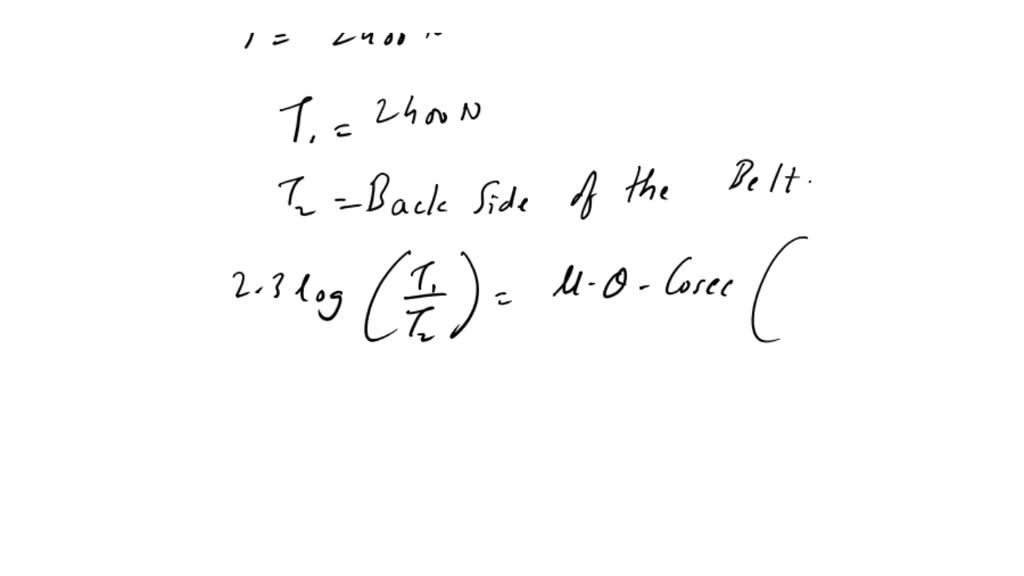 = 2400 N
T₁ = 2400 N
T₂ = Back Side of the Belt.
2.3 log (T₁/T₂) = μ·θ - Cosec (